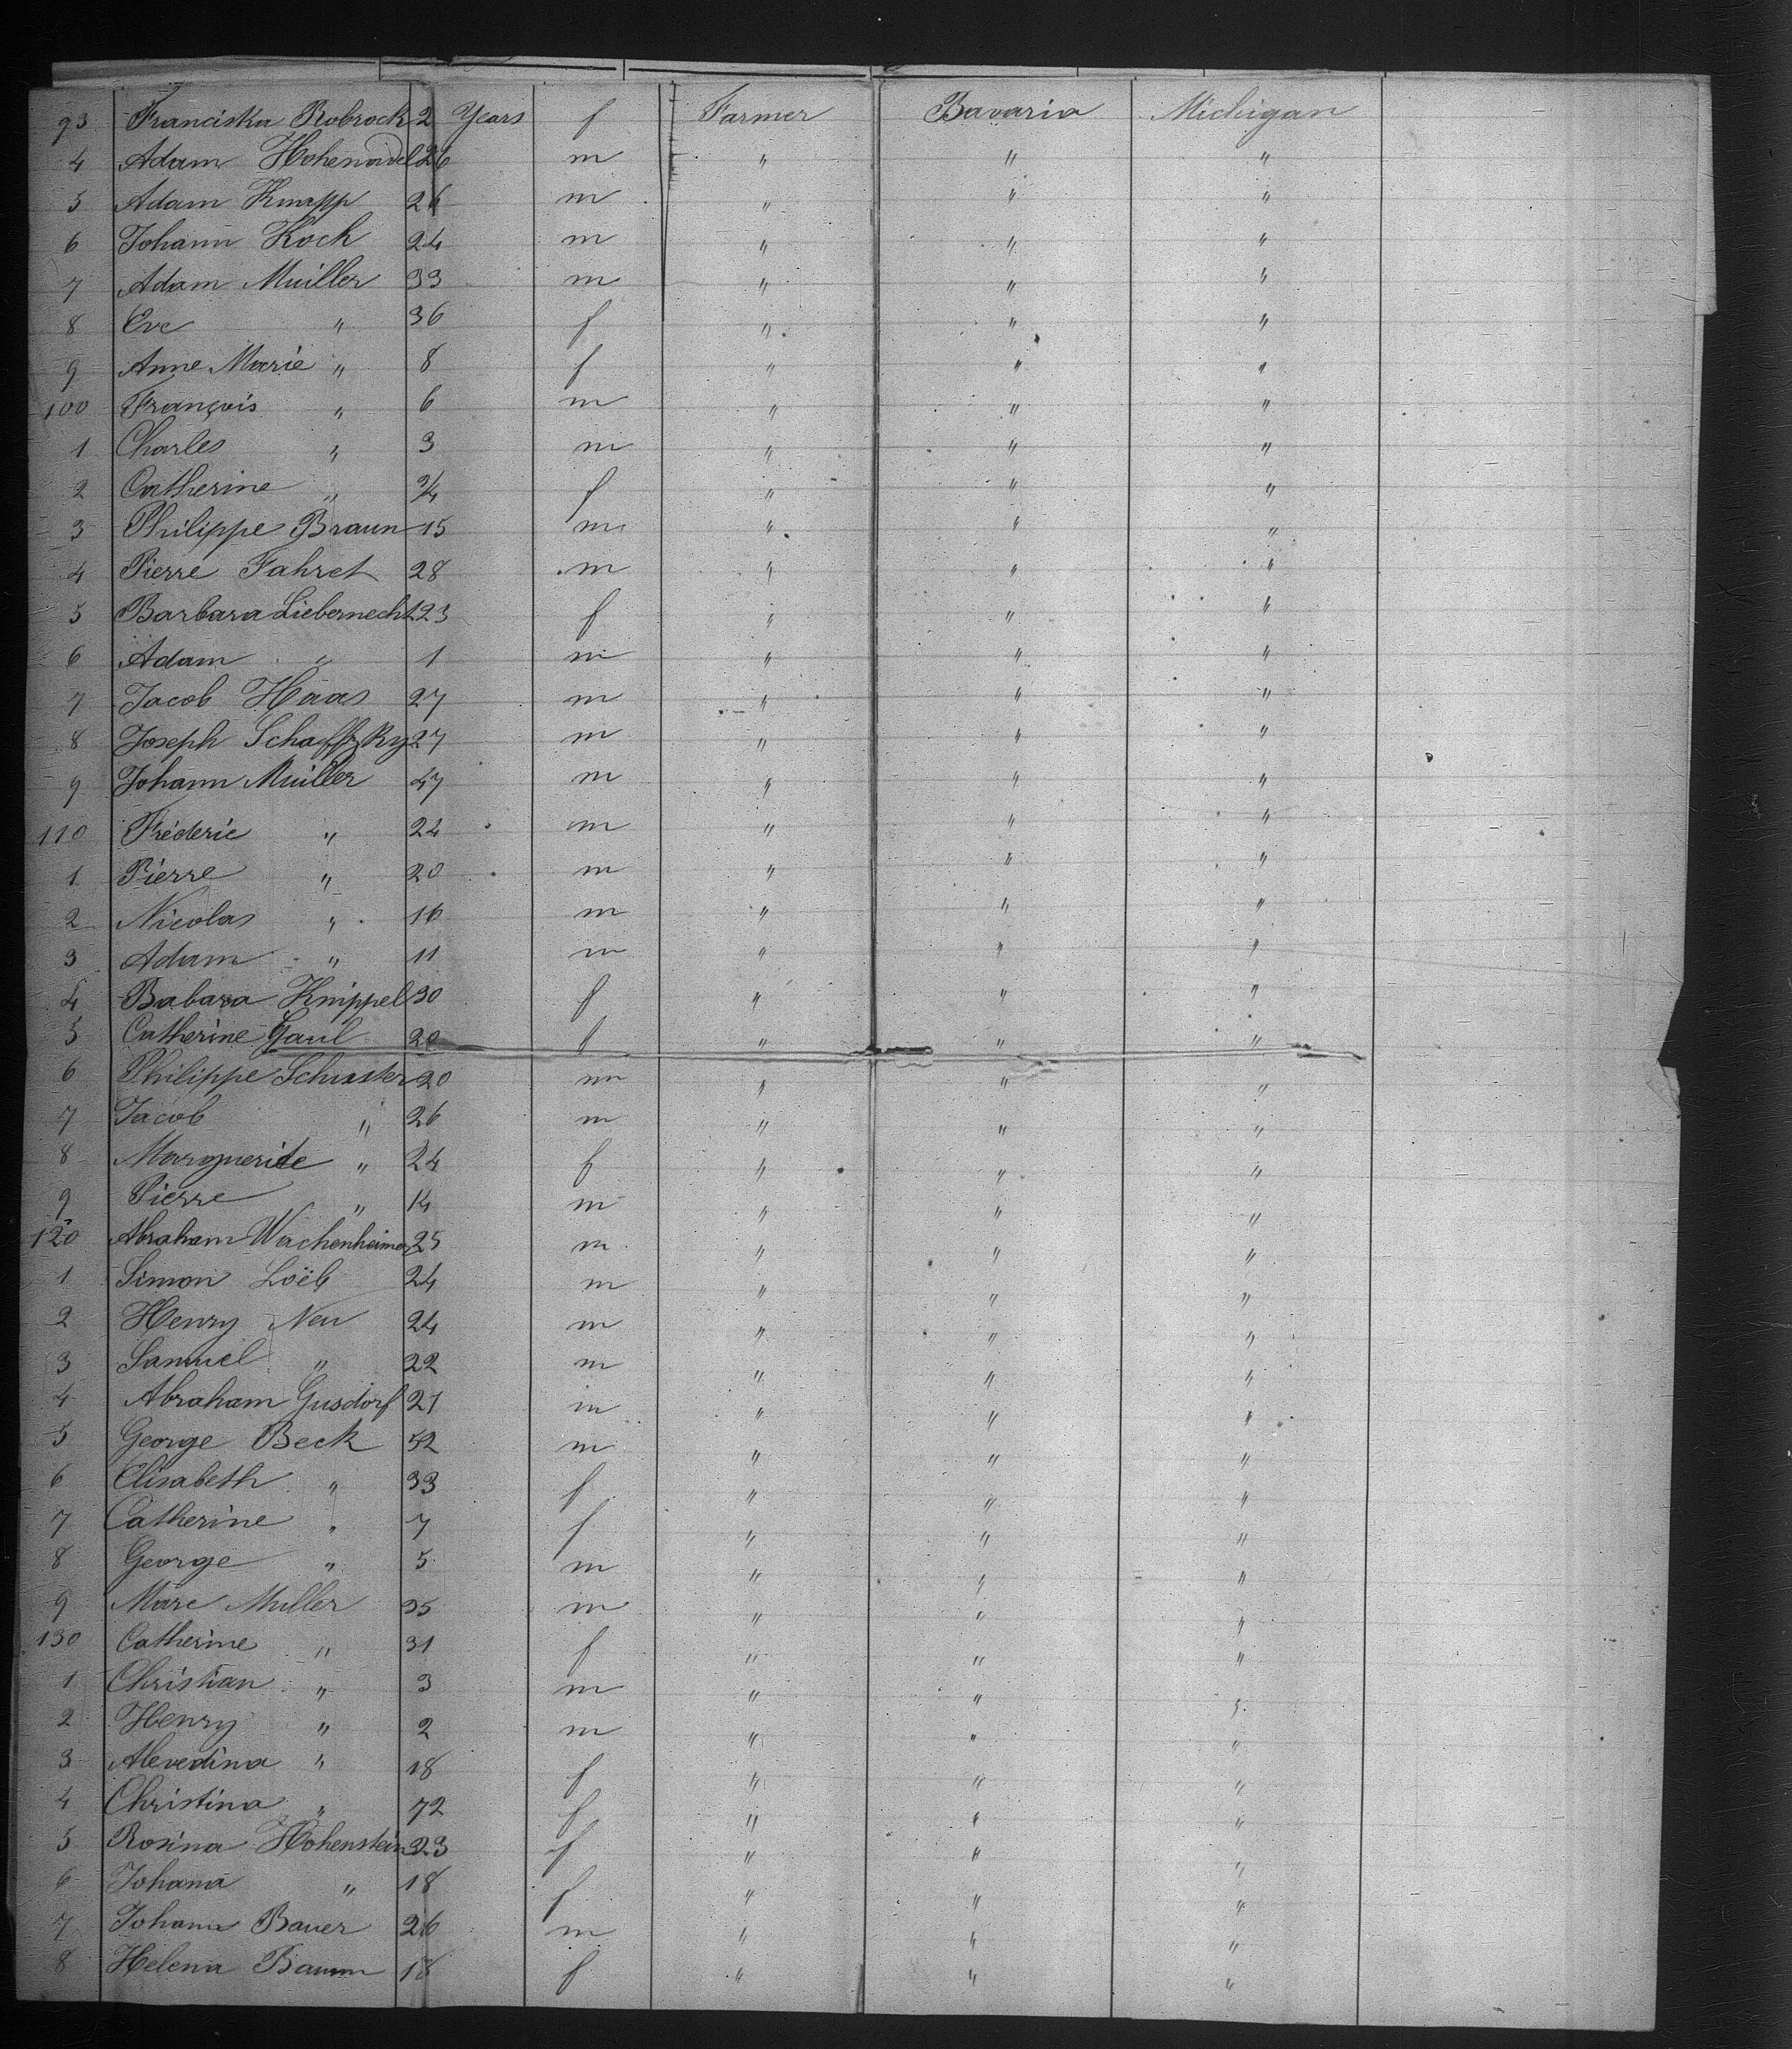 93 Franciska Robrock 2 Years f Farmer Bavaria Michigan
4 Adam Hohenadel 26 m " " "
5 Adam Knapp 26 m " " "
6 Johann Koch 24 m " " "
7 Adam Muiller 33 m " " "
8 Eve " 36 f " " "
9 Anne Marie " 8 f " " "
100 François " 6 m " " "
1 Charles " 3 m " " "
2 Catherine " 3/4 f " " "
3 Philippe Braun 15 m " " "
4 Pierre Fahret 28 m " " "
5 Barbara Liebernecht 23 f " " "
6 Adam " 1 m " " "
7 Jacob Haas 27 m " " "
8 Joseph Schaffzky 27 m " " "
9 Johann Muiller 47 m " " "
110 Fréderic " 24 m " " "
1 Pierre " 20 m " " "
2 Nicolas " 16 m " " "
3 Adam " 11 m " " "
4 Babara Knippel 30 f " " "
5 Catherine Gaul 20 f " " "
6 Philippe Schuster 20 m " " "
7 Jacob " 26 m " " "
8 Marguerite " 24 f " " "
9 Pierre " 14 m " " "
120 Abraham Wachenheimer 25 m " " "
1 Simon Loëb 24 m " " "
2 Henry Neu 24 m " " "
3 Samuel " 22 m " " "
4 Abraham Gusdorf 21 m " " "
5 George Beck 52 m " " "
6 Elisabeth " 33 f " " "
7 Catherine " 7 f " " "
8 George " 5 m " " "
9 Marc Muller 35 m " " "
130 Catherine " 31 f " " "
1 Christian " 3 m " " "
2 Henry " 2 m " " "
3 " 18 f " " "
4 Christina " 72 f " " "
5 Rosina Hohenstein 23 f " " "
6 Johana " 18 f " " "
7 Johann Bauer 26 m " " "
8 Helena Baumm 18 f " " "